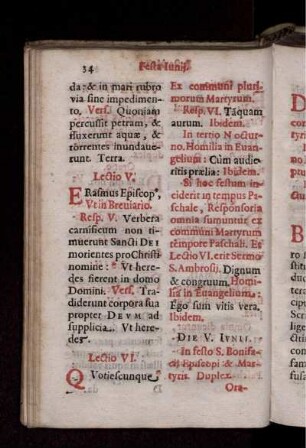 34
Festa Iunij.
da: & in mari rubro
via sine impedimen-
to. Vers. Quoniam
percussit petram, &
fluxerunt aquæ, &
torrentes inundaue-
runt. Terra.
Lectio V.
ERasmus Episcop⁹,
Vt in Breuiario.
Resp. V. Verbera
carnificum non ti-
muerunt Sancti DEI
morientes pro Christi
nomine: * Vt here-
des fierent in domo
Domini. Vers. Tra-
diderunt corpora sua
propter DEVM ad
supplicia. Vt here-
des.
Lectio VI.
QVotiescunque
Ex communi pluri-
morum Martyrum.
Resp. VI. Tãquam
aurum. Ibidem.
In tertio Noctur-
no. Homilia in Euan-
gelium: Cùm audie-
ritis prælia: Ibidem.
Si hoc festum in-
ciderit in tempus Pa-
schale, Responsoria
omnia sumuntur ex
communi Martyrum
tempore Paschali. Et
Lectio VI. erit Sermo
S. Ambrosij. Dignum
& congruum. Homi-
lia in Euangelium:
Ego sum vitis vera.
Ibidem.
DIE V. IVNII.
In festo S. Bonifa-
cij Episcopi & Mar-
tyris. Duplex.
Ora-